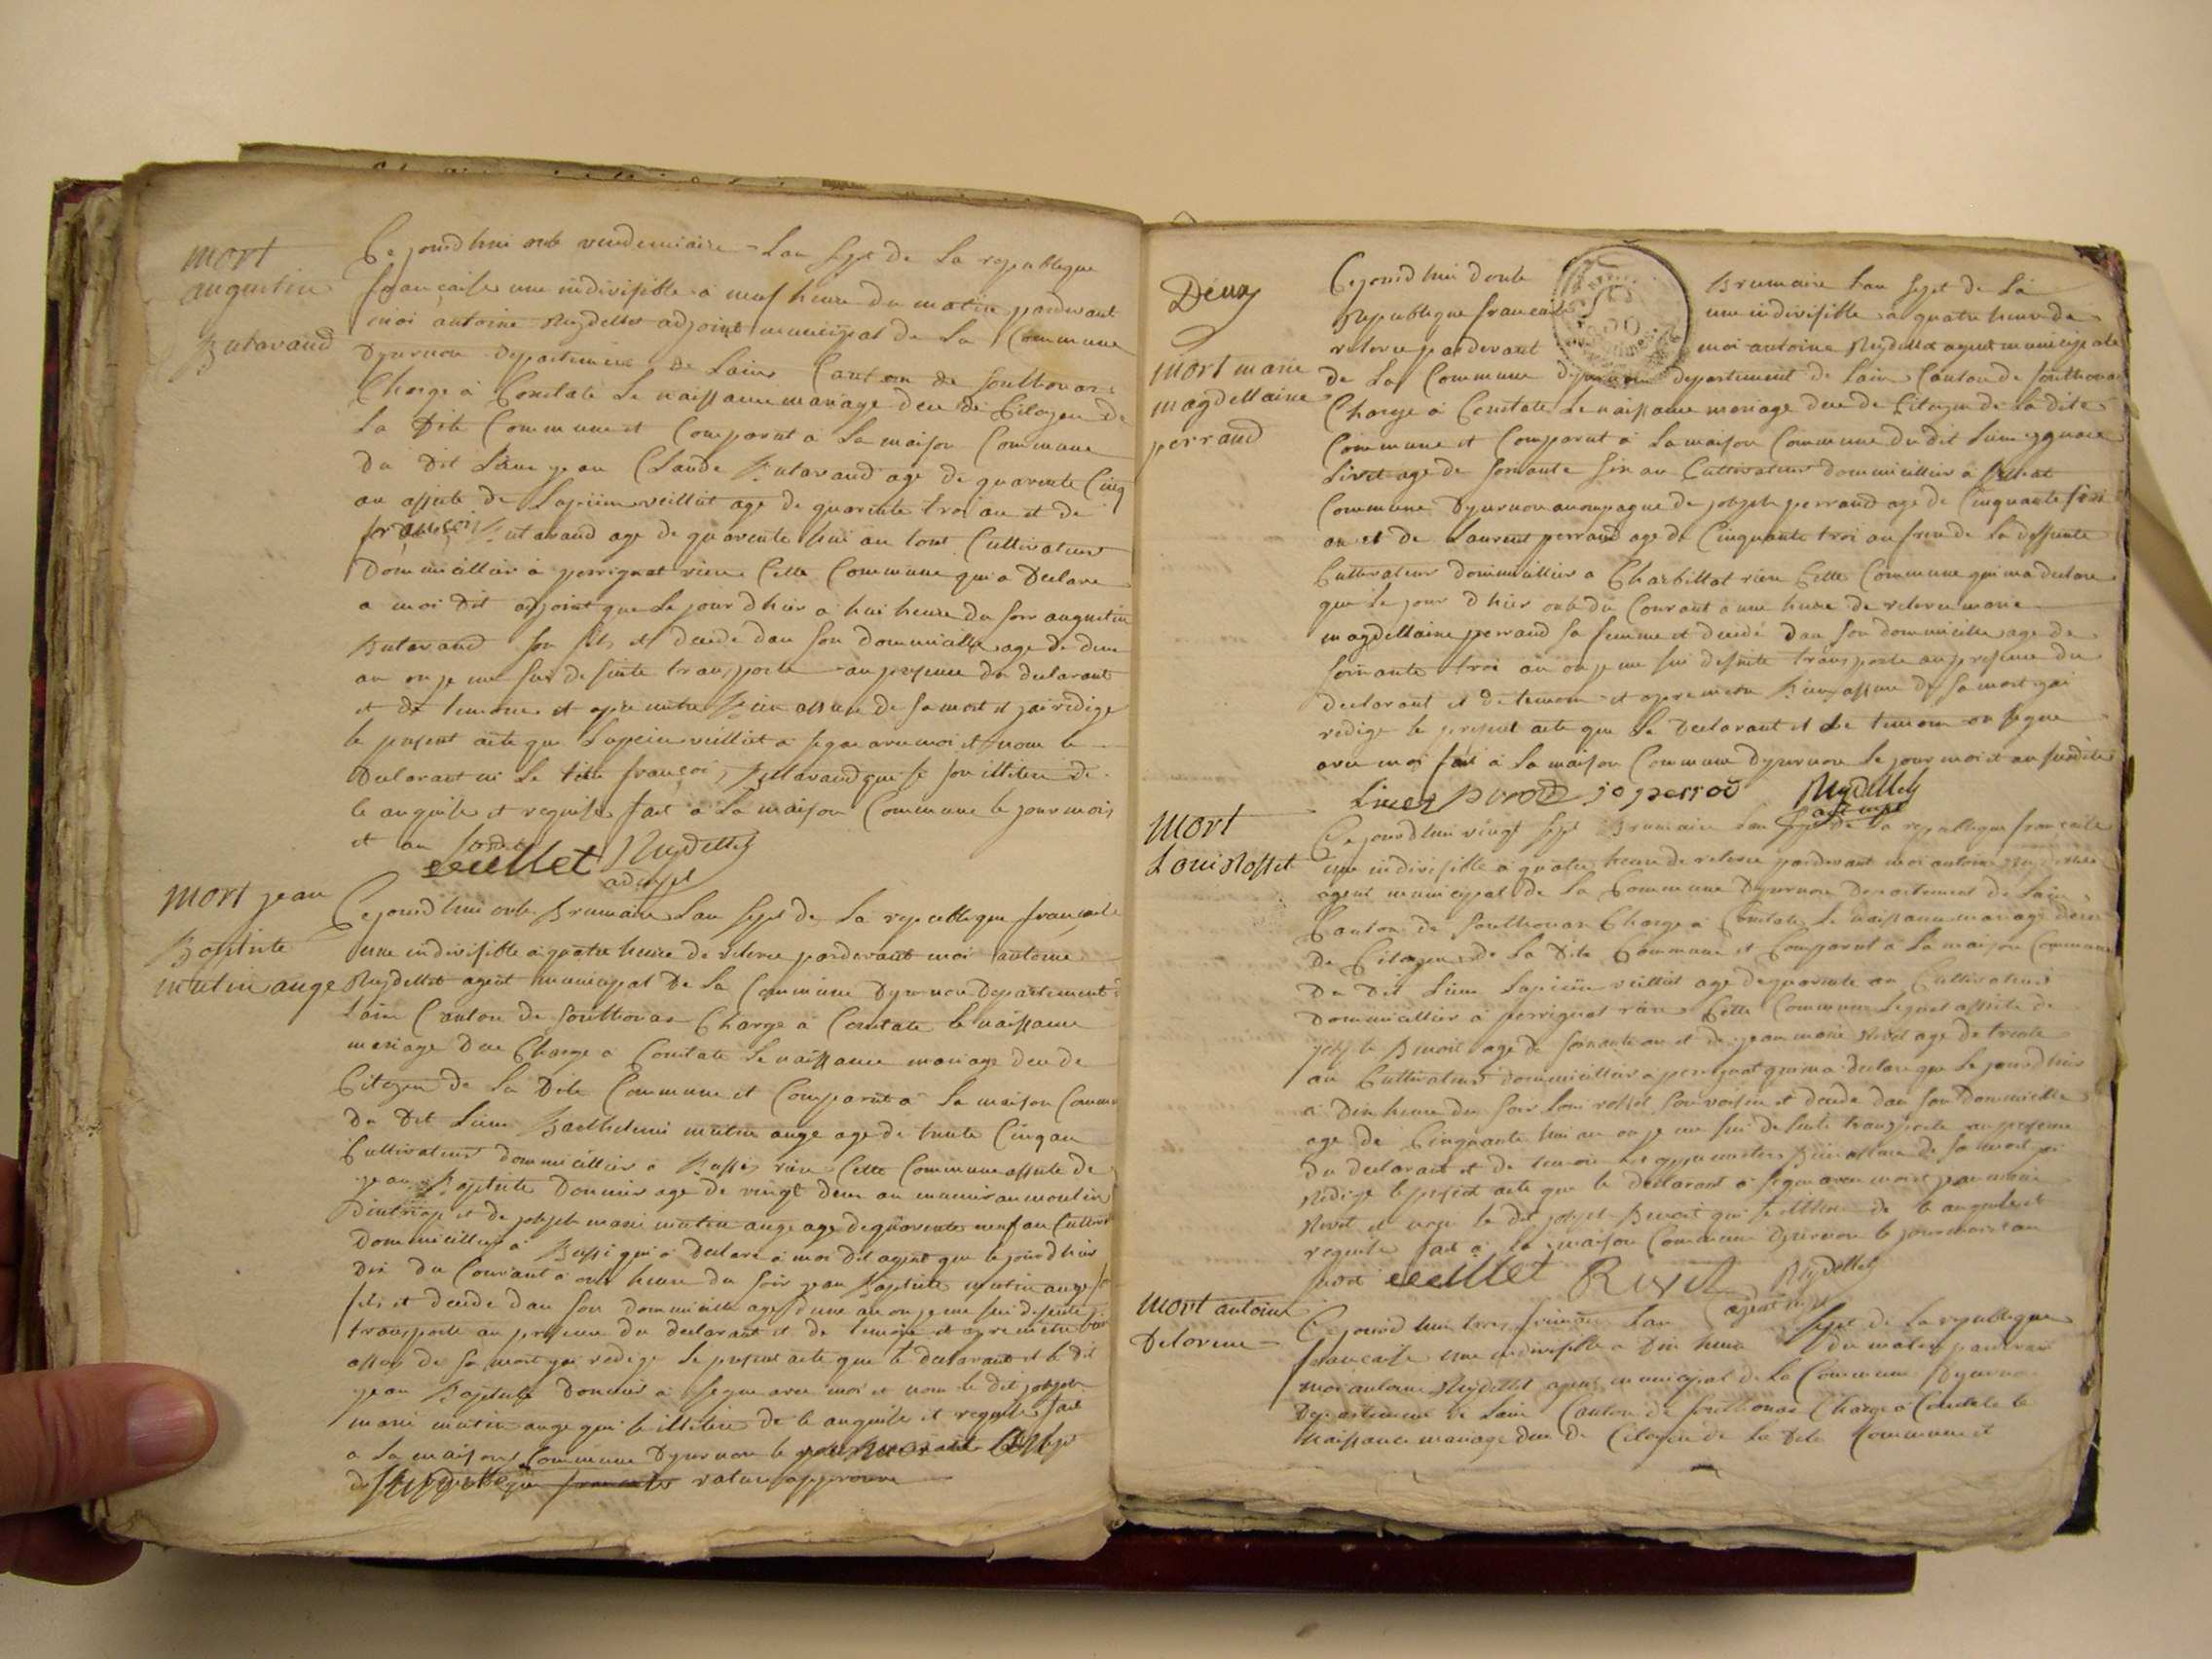 mort
augustin
Butavand
Ce jourdhui onle vendemiaire Lan sept de La republique
francaise une indivisible a neuf heure du matin pardevant
moi antoine Nuydellet adjoint municipal de La Commune
Dyzernon departement de Lains Canton de Sonthonax
Charge a Constate Le naissance mariage dece de Citoyen de
La Dite Commune et Comparut a La maison Commune
du Dit Lieu jean Claude Butavand age de quarente Cinq
an assiste de veilliet age de quarente troi an et de
francoi Butavand age de quarente hui an tout Cultivateurs
Dommicillier a perrignat rière Cette Commune qui a Declare
a moi Dit adjoint que Le jour dhier a hui heure du soir augustin
Butavand son fils et decede dan son dommicille age de deux
an ou je me sui de suite transporte au presence du declarant
et de temoins et apre metre Bien assure de sa mort et jai redige
le present acte que veilliet a signe avec moi et nom le
Declarant ni Le francoi Butavand que se son illitere de
le enquise et requise fait a La maison Commune le jour moi
et an susdit
veullet Nuydellet
adjoint
mort jean
Baptiste
mutin ange
Ce jourdhui onle Brumaire Lan sept de La republique francaise
une indivisible a quatre heure de releve pardevant moi antoine
Nuydellet agent municipal De La Commune Dyzernon Departement
Lain Canton de Sonthonax Charge a Constate le naissance
mariage Dece Charge a Constate Le naissance mariage dece de
Citoyen de La Dite Commune et Comparut a La maison Commune
Du Dit Lieu Barthelemi mutin ange age de trente Cinq an
Cultivateur dommicillier a Bussi rière Cette Commune assiste de
jean Baptiste Donmier age de vingt deux an au moulin
et de joseph marie mutin ange age de quarente neuf an Cultiv
Dommicillier a Bussi qui a declare a moi dit agent que le jour dhier
Dix du Courant a onle heure du soir jean Baptiste mutin ange
fils et decede dan son dommicille age dune an ou je me sui desuite
transporte au presence du declarant et de temoin et apre metre
assure de sa mort jai redige Le present acte que le declarant et le dit
jean Baptiste a signe avec moi et nom le dit joseph
marie mutin ange qui se illitere de le enquise et requise fait
a La maison Commune Dyzernon le
rature approuve
Deux
mort marie
magdellaine
perrand
Ce jourdhui doule Brumaire Lan sept de La
Republique francaise une indivisible a quatre heure de
releve pardevant moi antoine Nuydellet agent municipale
de La Commune Dyzernon departement de Lain Canton de Sonthonax
Charge a Constate Le naissance mariage dece de Citoyen de La dite
Commune et Comparut a La maison Commune du dit Lieu
Livet age de soisante six an Cultivateur dommicillier a
Commune Dyzernon acompagne de joseph perrand age de Cinquante six
an et de Laurent perrand age de Cinquante troi an frere de La deffunte
Cultivateur dommicillier a Charbillat rière Cette Commune qui ma declare
que Le jour dhier onle du Courant a une heure de releve marie
magdellaine perrand sa femme et decede dan son dommicille age de
soisante troi an ou je me sui desuite transporte au presence du
declarant et de temoin et apre metre Bien assure de sa mort jai
redige le present acte que Le Declarant et de temoin on signe
avec moi fait a La maison Commune Dyzernon Le jour moi et an susdite
Nuydellet
mort
Loui Rosset
Ce jourdhui vingt sept Brumaire Lan sept de La republique francaise
une indivisible a quatre heure de releve pardevant moi antoine Nuydellet
agent municipal de La Commune Dyzernon Departement de Lain
Canton de Sonthonax Charge a Constate Le naissance mariage dece
De Citoyen de La Dite Commune et Comparut a La maison Commune
Du Dit Lieu veilliet age de quarente an Cultivateur
Dommicillier a perrignat rière Cette Commune Lequel assiste de
joseph Benoit age de soisante an et de jean marie Rivet age de trente
an Cultivateurs dommicillier a perrignat qui ma declare que Le jourdhier
a Dix heure du soir Loui rosset son voisin et decede dan son Dommicille
age de Cinquante hui an ou je me sui de suite transporte au presence
du declarant et de temoin et apre metre Bien assure de sa mort jai
Redige Le present acte que le declarant a signe avec moi et jean marie
Rivet et nom le dit joseph Benoit qui se illitere de le enquise et
requise fait a La maison Commune Dyzernon le jour moi et an
susdit veillet Rivet Nuydellet
agent
mort antoine
Delorme
Ce jourdhui trois frimaire Lan sept de La republique
francaise une indivisible a Dix heure du matin pardevan
moi antoine Nuydellet agent municipal de La Commune Dyzernon
Departement de Lain Canton de Sonthonax Charge a Constate le
Naissance mariage dece de Citoyen de La Dite Commune et